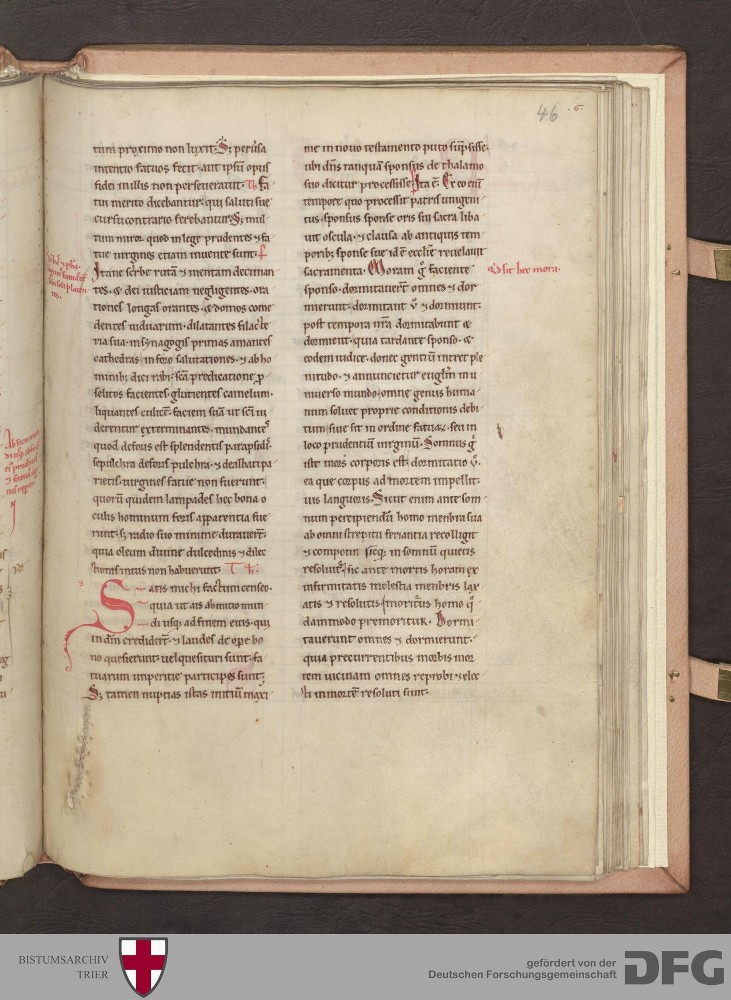 46
tum proximo non luxit. S; peruersa
intentio fatuos fecit. aut ipsū opus
fidei in illis non perseuerauit. Th. Fa
tui merito dicebantur. qui saluti sue
cursu contrario ferebantur. S; mul
tum miror quod in lege prudentes ⁊ fa
tue uirgines etiam inuente sunt.
Itane scribe rutā ⁊ mentam deciman
tes. & dei iusticiam negligentes. ora
tiones longas orantes. & domos come
dentes uiduarum. dilatantes filacte
ria sua. in synagogis primas amantes
cathedras in foro salutationes. ⁊ ab ho
minib; dici rabi. scā predicatione p
selitos facientes. glutientes camelum.
liquantes culicē. faciem suā ut scī ui
derentur exterminantes. mundantes
quod deforis est splendentis parapsidis.
sepulchra deforis pulchra. ⁊ dealbati pa
rietis. uirgines fatue non fuerunt.
quorū quidem lampades hec bona o
culis hominum foris apparentia fue
runt. s; radio suo minime durauerūt.
quia oleum diuine dulcedinis ⁊ dilec
tionis intus non habuerunt.
Satis michi factum censeo.
quia ut ais ab initio mun
di usq; ad finem eius. qui
in dm̄ crediderūt. ⁊ laudes de ope bo
no quesierunt. uel quesituri sunt. fa
tuarum imperitie participes sunt;
S; tamen nuptias istas initiū maxi
me in nouo testamento puto sūpsisse.
ubi dn̄s tanquā sponsus de thalamo
suo dicitur processisse. Ita ē. Ex eo enī
tempore quo processit patris unigeni
tus. sponsus sponse oris sui sacra liba
uit oscula. ⁊ clausa ab antiquis tem
porib; sponse sue id ē ecclie reuelauit
sacramenta. Moram g̊ faciente
sponso. dormitauerūt omnes & dor
mierunt. dormitant ū ⁊ dormiunt.
post tempora nr̄a dormitabunt &
dormient. quia tardante sponso. &
eodem iudice. donec gentiū intret ple
nitudo. ⁊ annuncietur euglm̄ in u
niuerso mundo. omne genus huma
num soluet proprie conditionis debi
tum siue sit in ordine fatuarū. seu in
loco prudentium uirginū. Somnus g̊
iste mors corporis est. dormitatio ū.
ea que corpus ad mortem impellit.
uis languoris. Sicut enim ante som
num percipiendū homo membra sua
ab omni strepitu feriantia recolligit
⁊ componit sicq; in somnū quietis
resoluitur. sic ante mortis horam ex
infirmitatis molestia membris lax
atis ⁊ resolutis moriturus homo q̊
dammodo premoritur. Dormi
tauerunt omnes ⁊ dormierunt.
quia precurrentibus morbis mor
tem uicinam omnes reprobi ⁊ elec
ti in mortē resoluti sunt.
Q' sit hec mora.
BISTUMSARCHIV
TRIER
gefördert von der
Deutschen Forschungsgemeinschaft
DFG